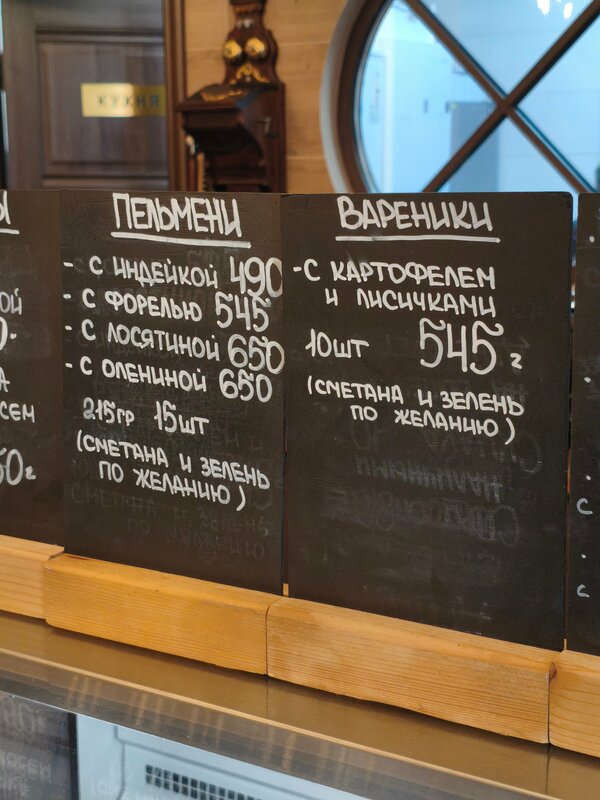 КУХНЯ
ПЕЛЬМЕНИ
- С ИНДЕЙКОЙ 490
- С ФОРЕЛЬЮ 545
- С ЛОСЯТИНОЙ 650
- С ОЛЕНИНОЙ 650
215ГР 15ШТ
(СМЕТАНА И ЗЕЛЕНЬ
ПО ЖЕЛАНИЮ)
ВАРЕНИКИ
- С КАРТОФЕЛЕМ
И ЛИСИЧКАМИ
10ШТ 545 г
(СМЕТАНА И ЗЕЛЕНЬ
ПО ЖЕЛАНИЮ)